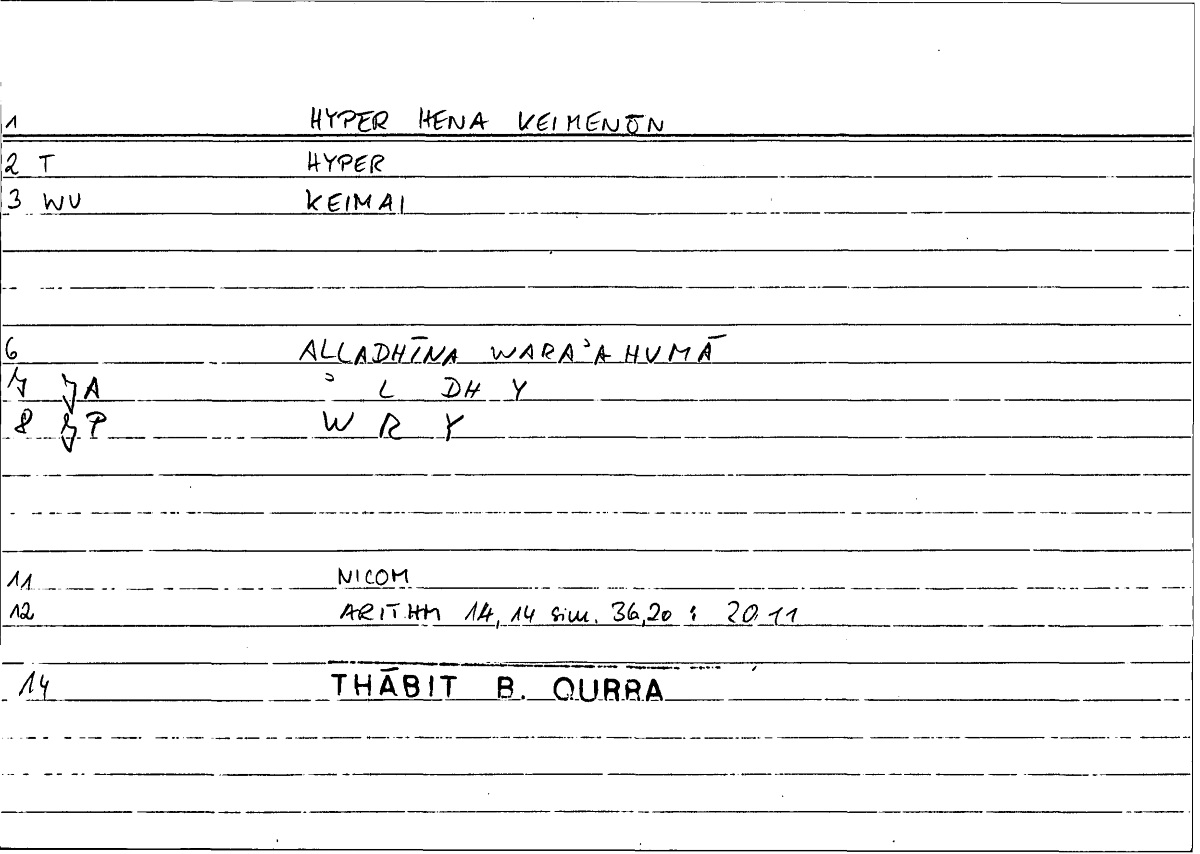 1 HYPER HENA KEIMENŌN
2 T HYPER
3 WU KEIMAI
6 ALLADHĪNA WARAʾAHUMĀ
7 A ʾ L DH Y
8 P W R Y
11 NICOM
12 ARITHM 14,14 sim. 36,20 : 20,11
14 THĀBIT B. QURRA